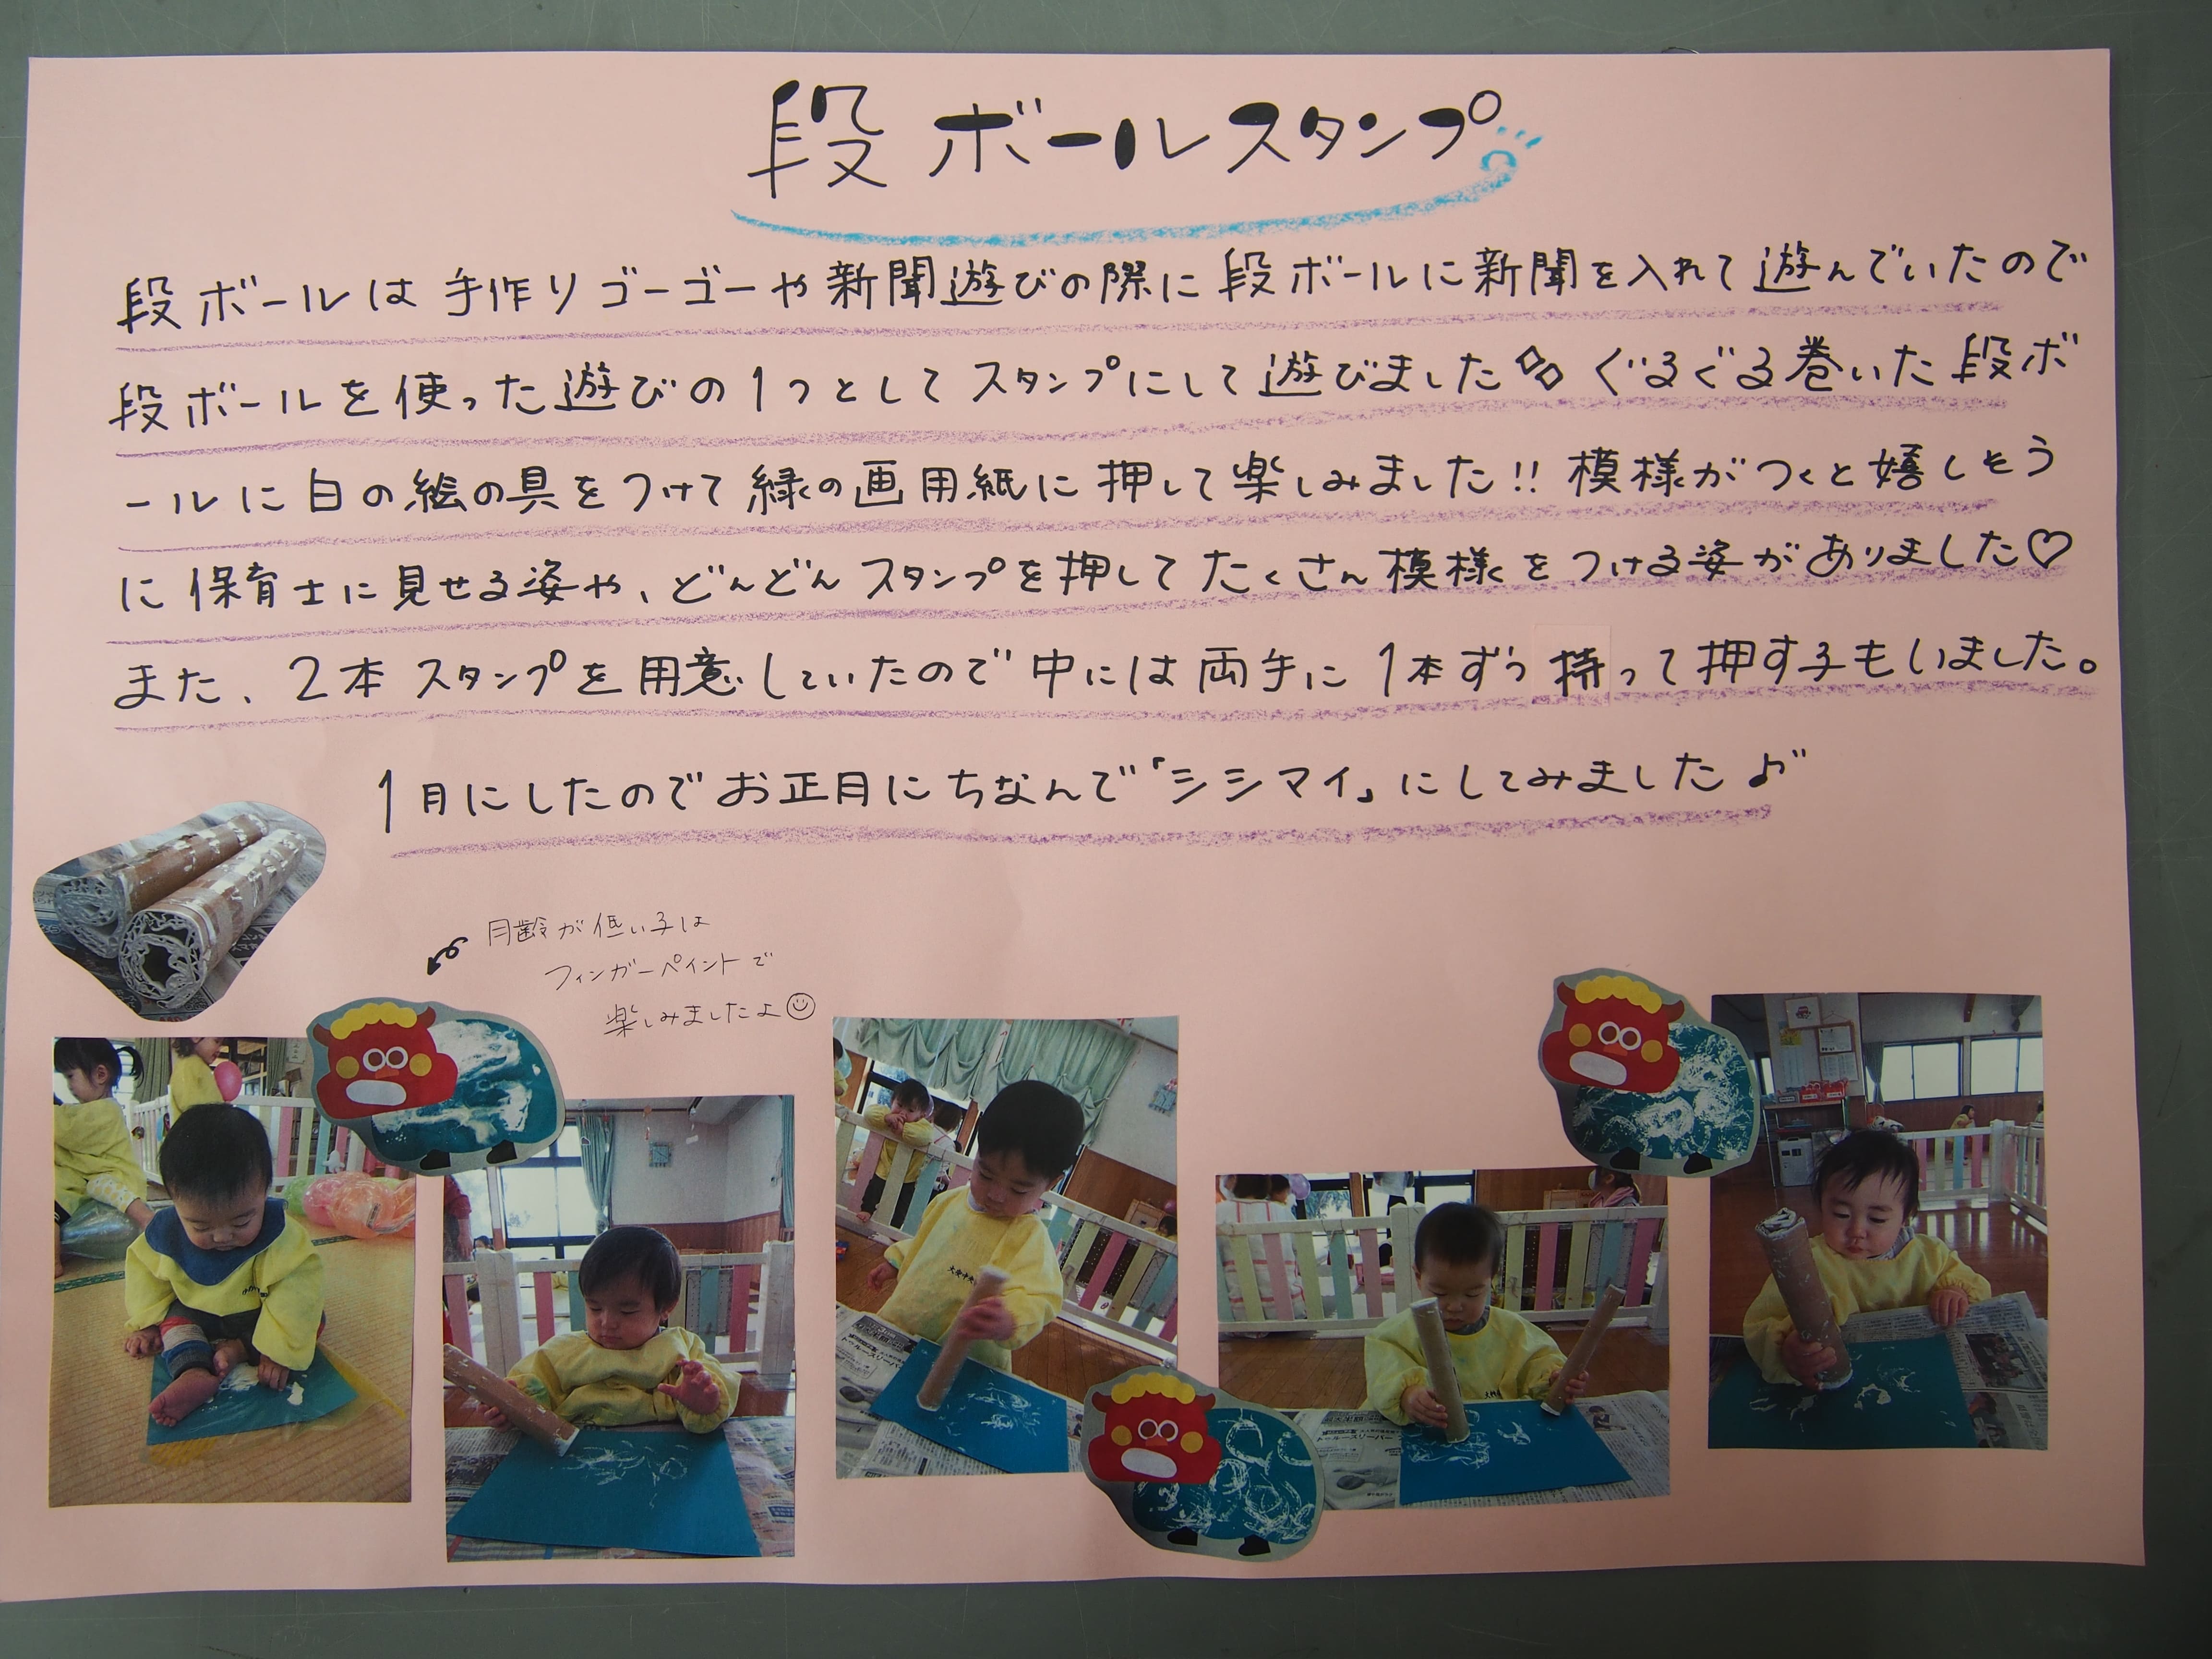 段ボールスタンプ
段ボールは手作りゴーゴーや新聞遊びの際に段ボールに新聞を入れて遊んでいたので
段ボールを使った遊びの1つとしてスタンプにして遊びました ぐるぐる巻いた段ボ
ールに白の絵の具をつけて緑の画用紙に押して楽しみました!! 模様がつくと嬉しそう
に保育士に見せる姿や、どんどんスタンプを押してたくさん模様をつける姿がありました♡
また、2本スタンプを用意していたので中には両手に1本ずつ持って押す子もいました。
1月にしたのでお正月にちなんで「シシマイ」にしてみました♪
月齢が低い子は
フィンガーペイントで
楽しみましたよ☺